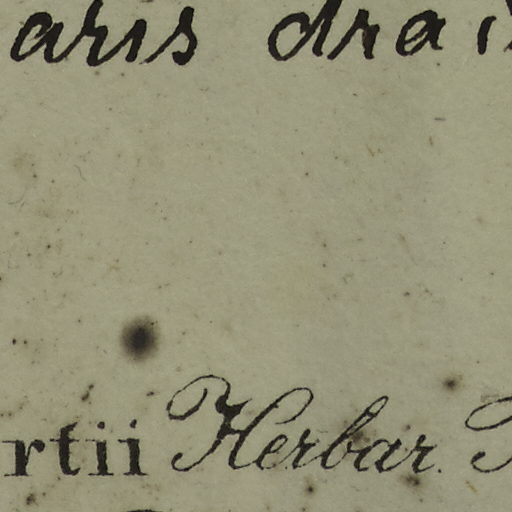 aris drai
rtii Herbar.